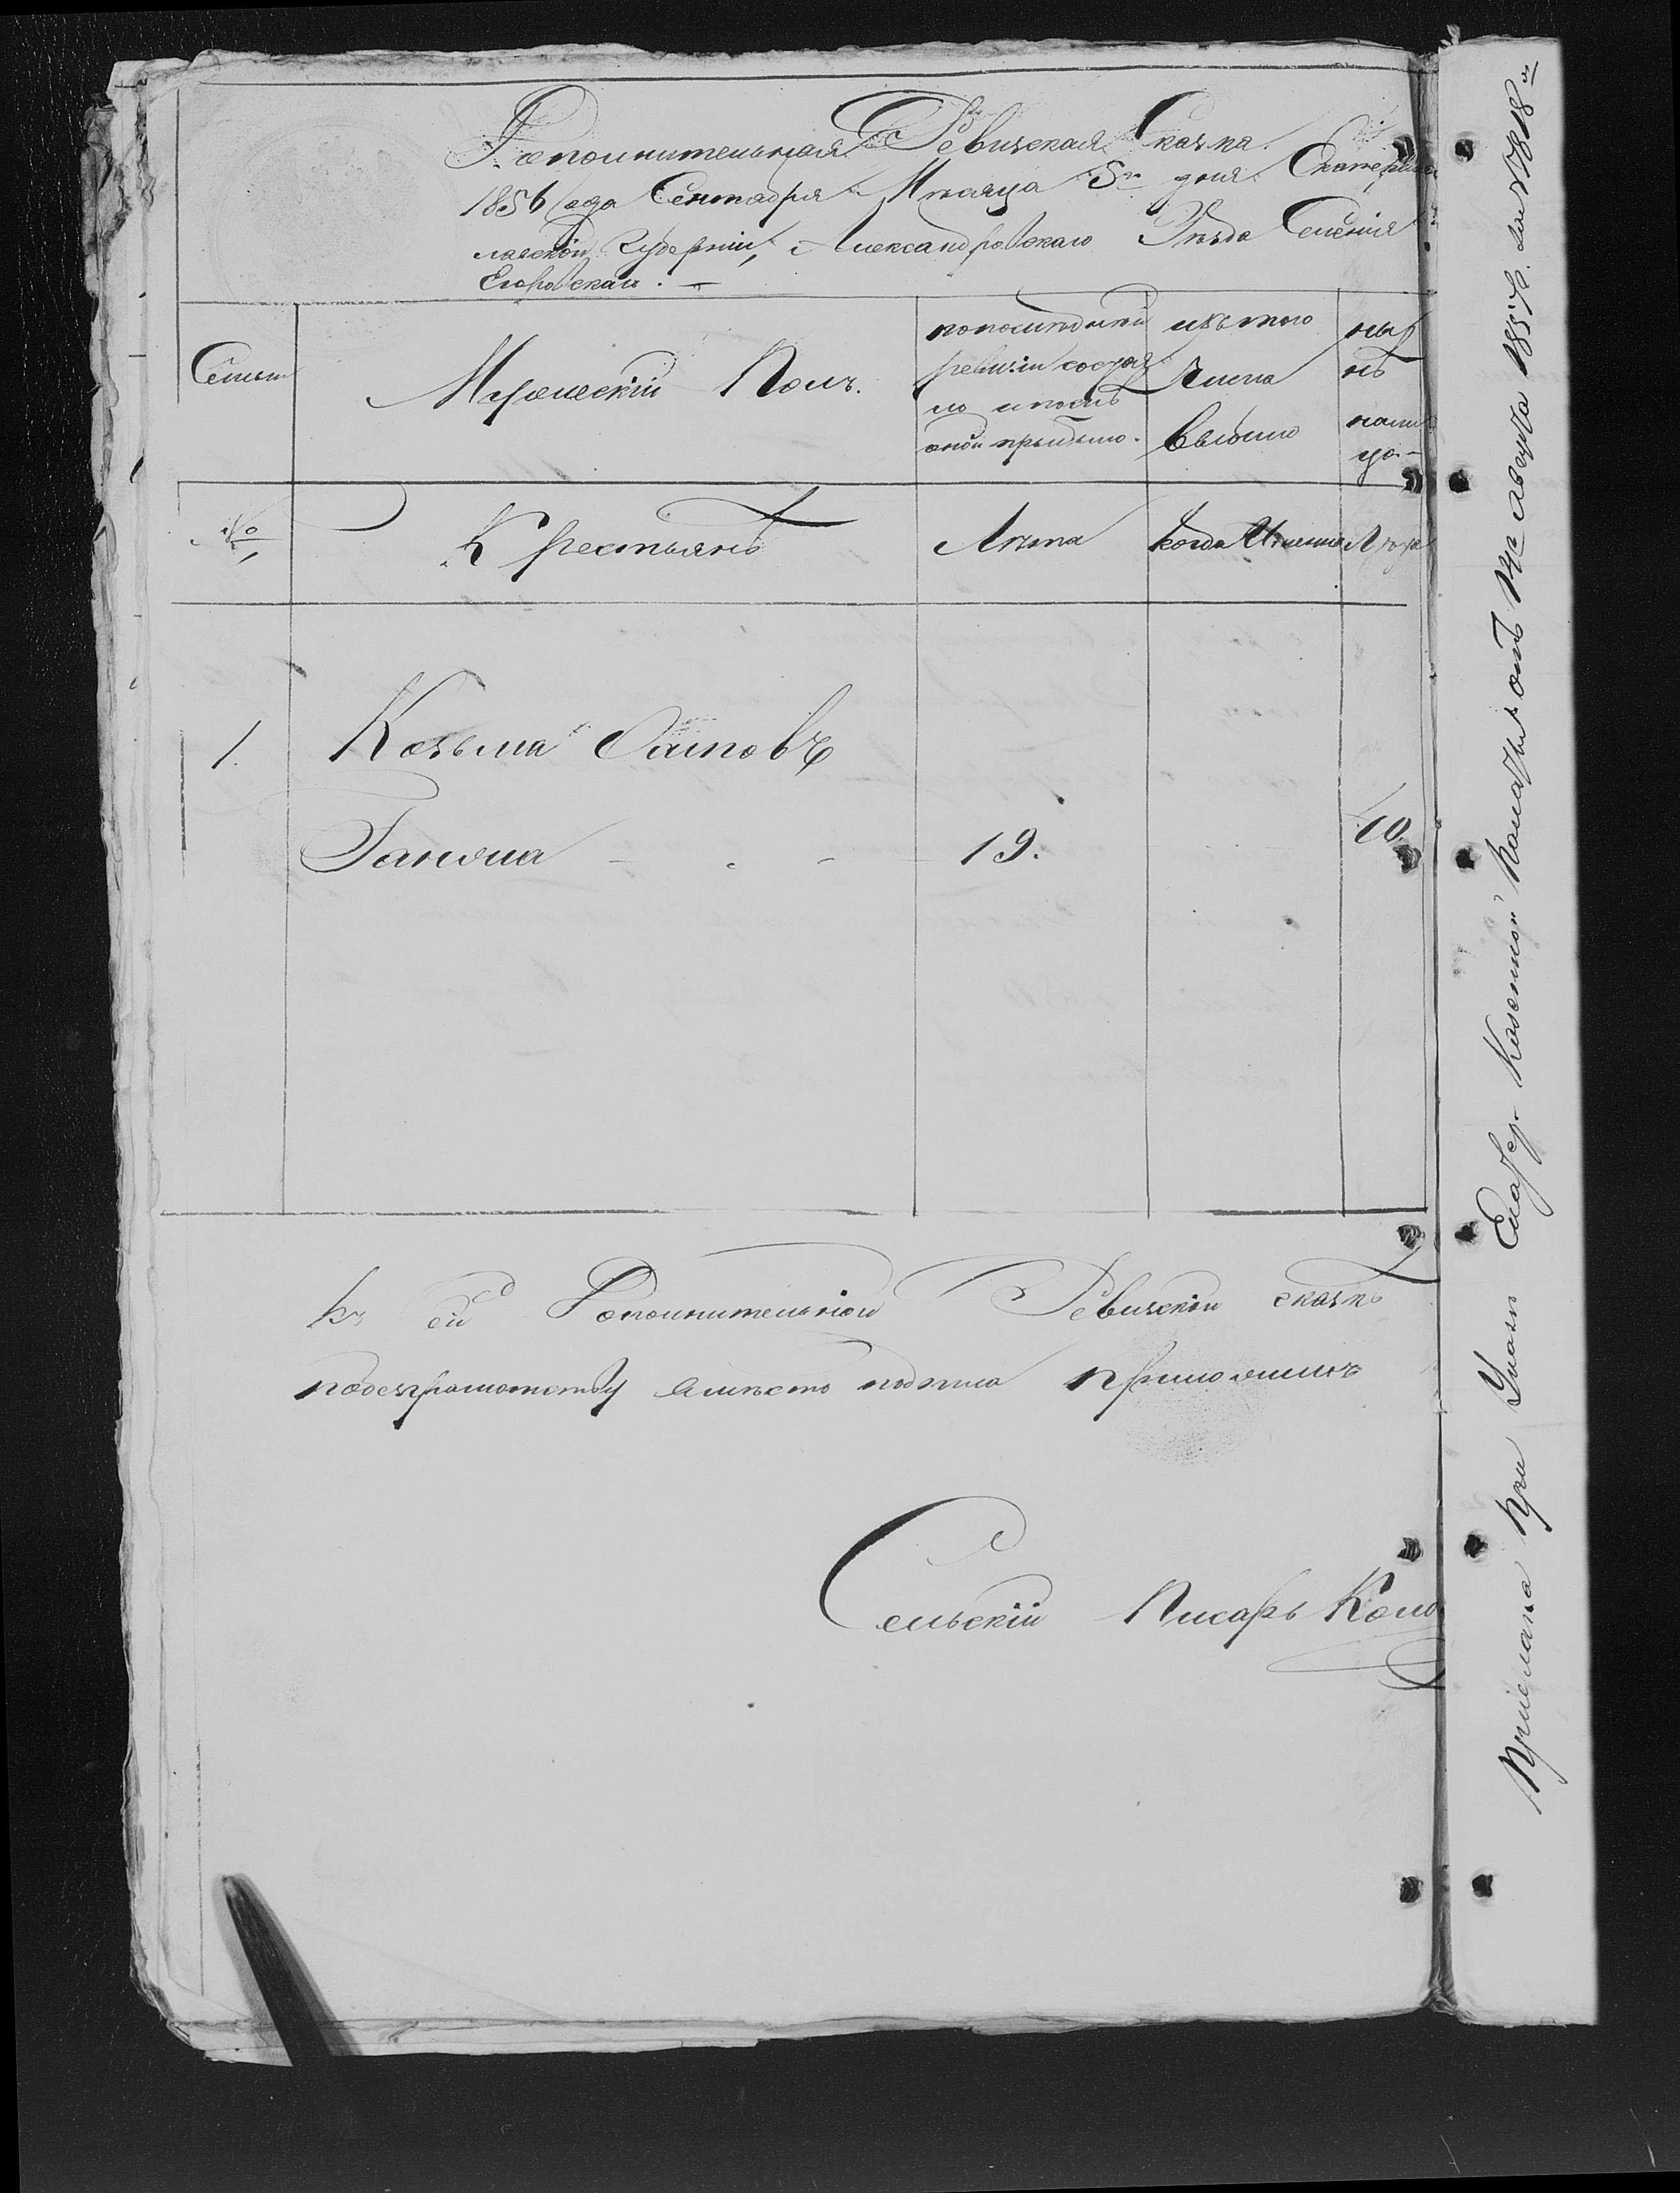 Дополнительная Ревизская Сказка.
1856 года Сентября Мѣсяца 5го дня. Екатерино
лавской Губерніи, Александровскаго Уѣзда Селенія
Егоровскаго. —
Семьи
Мужескій Полъ.
по последней
ревизіи состоя
ло и послѣ
оной прибыло.
изъ того
числа
выбыло
нын
нѣ
на ли
цо —
№
Крестьянѣ
Лѣта
когда именно
Лѣта
1.
Козьма Осиповъ
Ганжа - - -
19.
10.
Къ сей Дополнительной Ревизской сказкѣ
по безграмотству вмѣсто подписа приложилъ
Сельскій Писарь
Прислана при Указѣ Екатер. Казенной Палаты отъ Августа 1857 г. за №